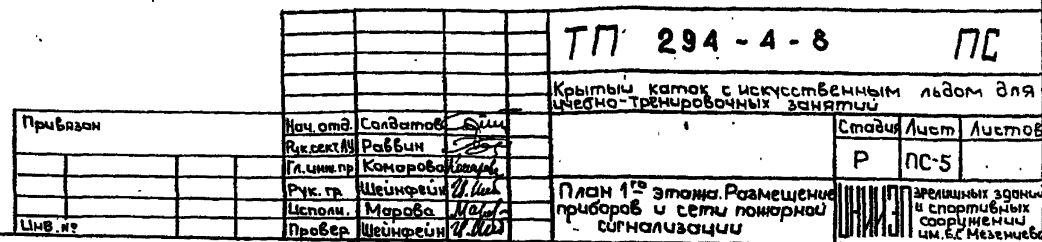 ТП 294-4-8 ПС
Крытый каток с искусственным льдом для
учебно-тренировочных занятий
Привязан
Инв.№
Нач.отд. Солдатов
Рук.сект.АУ Раввин
Гл.инж.пр Комарова
Рук. гр. Шейнфейн
Исполн. Марова
Провер Шейнфейн
Стадия Лист Листов
Р ПС-5
План 1го этажа. Размещение
приборов и сети пожарной
сигнализации
ЦНИИЭП зрелищных зданий
и спортивных
сооружений
им. Б.С. Мезенцева